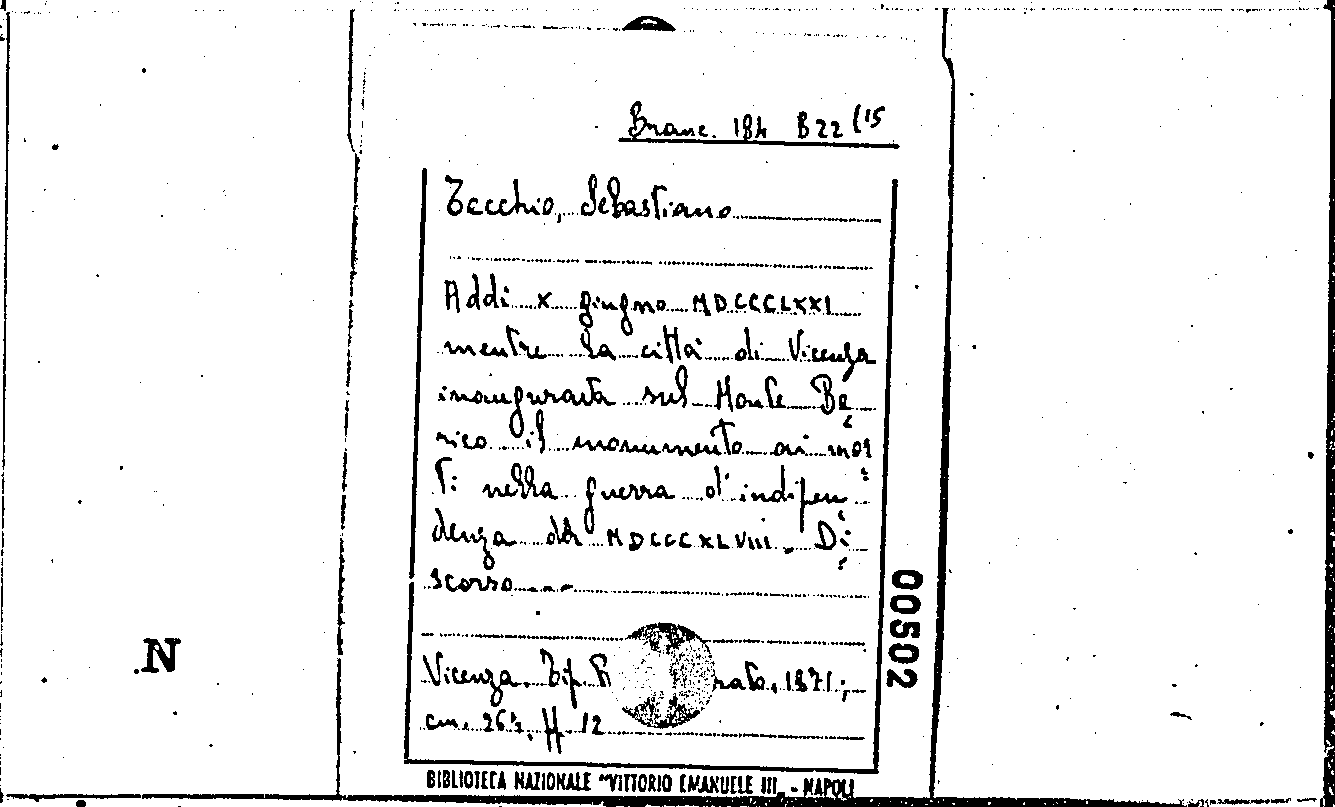 Branc. 184 B22 (15
Tecchio, Sebastiano
Addì X giugno MDCCCLXXI
mentre la città di Vicenza
inaugurata sul Monte Be
rico il monumento ai mor
ti nella guerra d'indipen
denza del MDCCCXLVIII. Di
scorso...
Vicenza. Tip. 1871;
cm. 26½. ff. 12
BIBLIOTECA NAZIONALE "VITTORIO EMANUELE III" - NAPOLI
00502
N